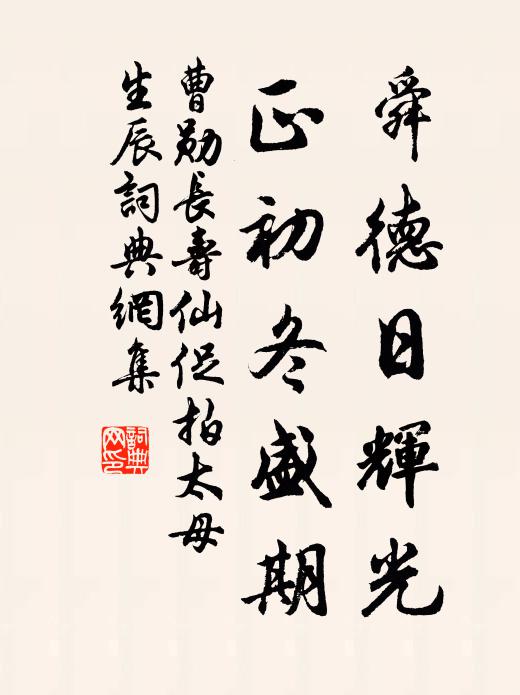 舜德日輝光
正初冬盛期
曹勛長壽仙促拍太母
生辰詞典網集
詞典
网印